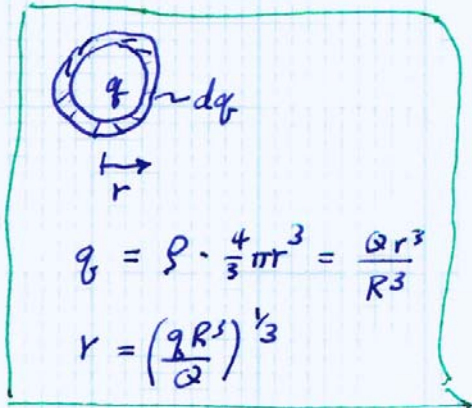 q ~dq
r
q = ρ · 4/3 πr³ = Qr³/R³
r = (qR³/Q)^1/3